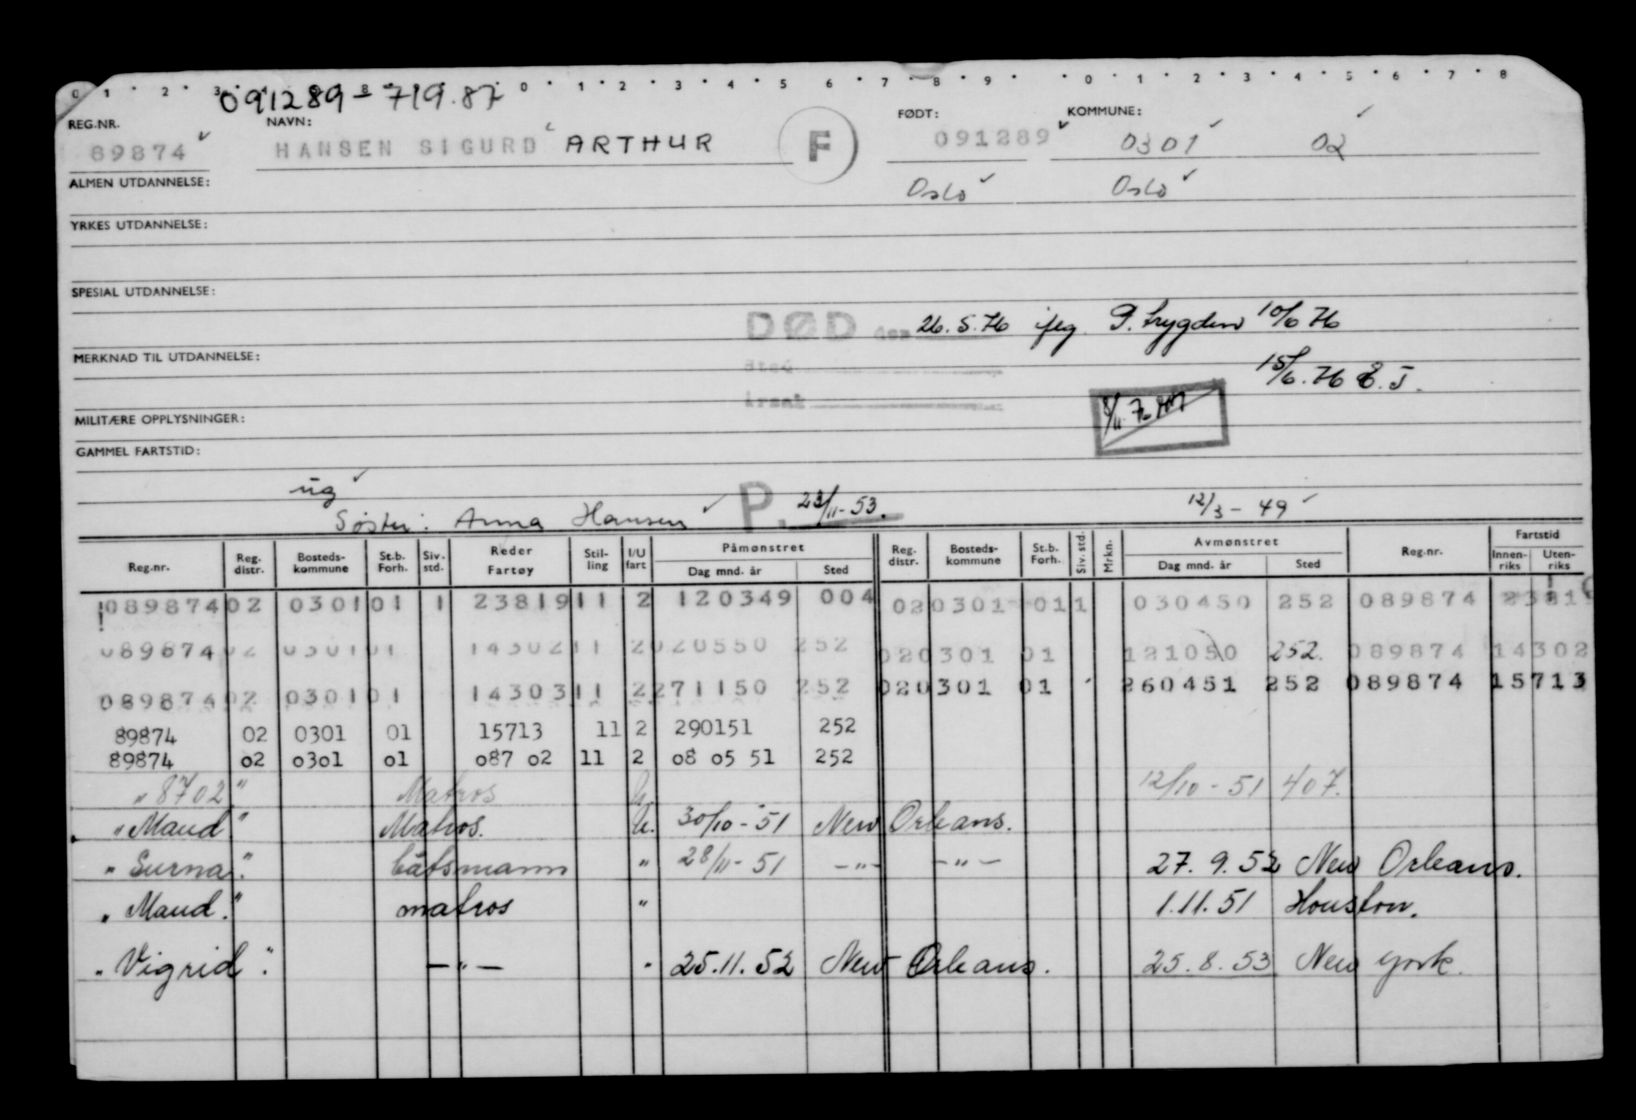 0 1 2 3 8 0 1 2 3 4 5 6 7 8 9 0 1 2 3 4 5 6 7 8
091289-719.87
REG.NR. NAVN: FØDT: KOMMUNE:
89874 HANSEN SIGURD ARTHUR F 091289 0301 02
ALMEN UTDANNELSE: Oslo Oslo
YRKES UTDANNELSE:
SPESIAL UTDANNELSE:
DØD den 26.5.76 iflg. P. trygden 10/6 76
MERKNAD TIL UTDANNELSE: Sted 15/6.76 E.J.
Årsak
MILITÆRE OPPLYSNINGER:
GAMMEL FARTSTID:
ug
Søster: Anna Hansen P. 23/11-53. 12/3-49
Reg.nr. Reg. distr. Bosteds-kommune St.b. Forh. Siv. std. Reder Fartøy Stil-ling I/U fart Påmønstret Dag mnd. år Sted Reg. distr. Bosteds-kommune St.b. Forh. Siv. std. Mrkn. Avmønstret Dag mnd. år Sted Reg.nr. Fartstid Innen-riks Uten-riks
089874 02 0301 01 1 23819 11 2 120349 004 02 0301 01 1 030450 252 089874 2381
089874 02 0301 01 14302 11 2 020550 252 02 0301 01 121050 252. 089874 14302
089874 02 0301 01 14303 11 2 271150 252 02 0301 01 260451 252 089874 15713
89874 02 0301 01 15713 11 2 290151 252
89874 o2 o3o1 o1 o87 o2 11 2 o8 o5 51 252
"8702" Matros U. 12/10-51 407.
"Maud" Matros. U. 30/10-51 New Orleans.
"Surna". båtsmann " 28/11-51 -"- -"- 27.9.52 New Orleans.
"Maud." matros " 1.11.51 Houston.
"Vigrid". -"- " 25.11.52 New Orleans. 25.8.53 New York.